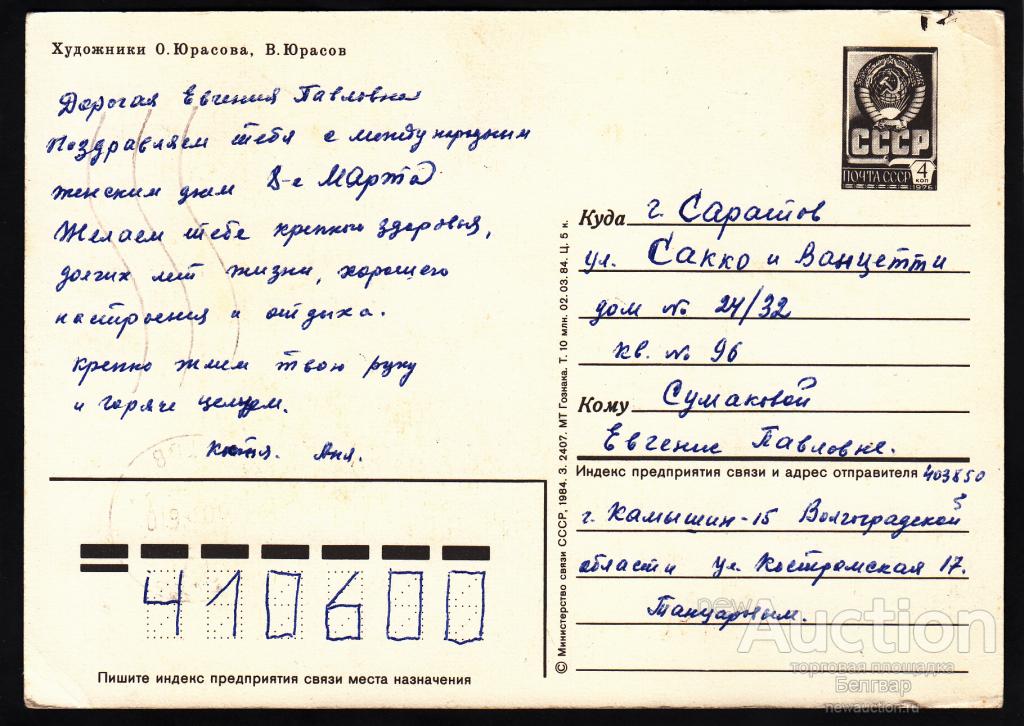 Художники О. Юрасова, В. Юрасов
Дорогая Евгения Павловна
Поздравляем тебя с международным
женским днем 8-е Марта
Желаем тебе крепкого здоровья,
долгих лет жизни, хорошего
настроения и отдыха.
крепко жмем твою руку
и горячо целуем.
Катя. Аня.
СССР
ПОЧТА СССР 4 КОП
1976
Куда г. Саратов
ул. Сакко и Ванцетти
дом № 24/32
кв. № 96
Кому Сумаковой
Евгение Павловне.
Индекс предприятия связи и адрес отправителя 403850
г. Камышин-15 Волгоградской
области ул Костромская 17.
410600
Пишите индекс предприятия связи места назначения
© Министерство связи СССР, 1984. З. 2407. МТ Гознака. Т. 10 млн. 02. 03. 84. Ц. 5 к.
newAuction
торговая площадка
Белгвар
newauction.ru